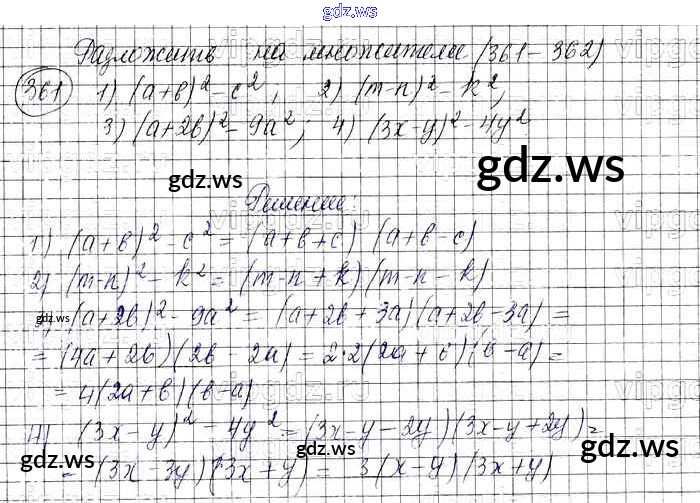 gdz.ws
Разложить на множители (361-362)
361 1) (a+b)² - c², 2) (m-n)² - k²,
3) (a+2b)² - 9a²; 4) (3x-y)² - 4y²
gdz.ws
gdz.ws
Решение:
1) (a+b)² - c² = (a+b+c) (a+b-c)
2) (m-n)² - k² = (m-n+k)(m-n-k)
gdz.ws
(a+2b)² - 9a² = (a+2b+3a)(a+2b-3a) =
= (4a+2b)(2b-2a) = 2·2(2a+b)(b-a) =
= 4(2a+b)(b-a)
gdz.ws
4) (3x-y)² - 4y² = (3x-y-2y)(3x-y+2y) =
= (3x-3y)(3x+y) = 3(x-y)(3x+y)
gdz.ws
gdz.ws